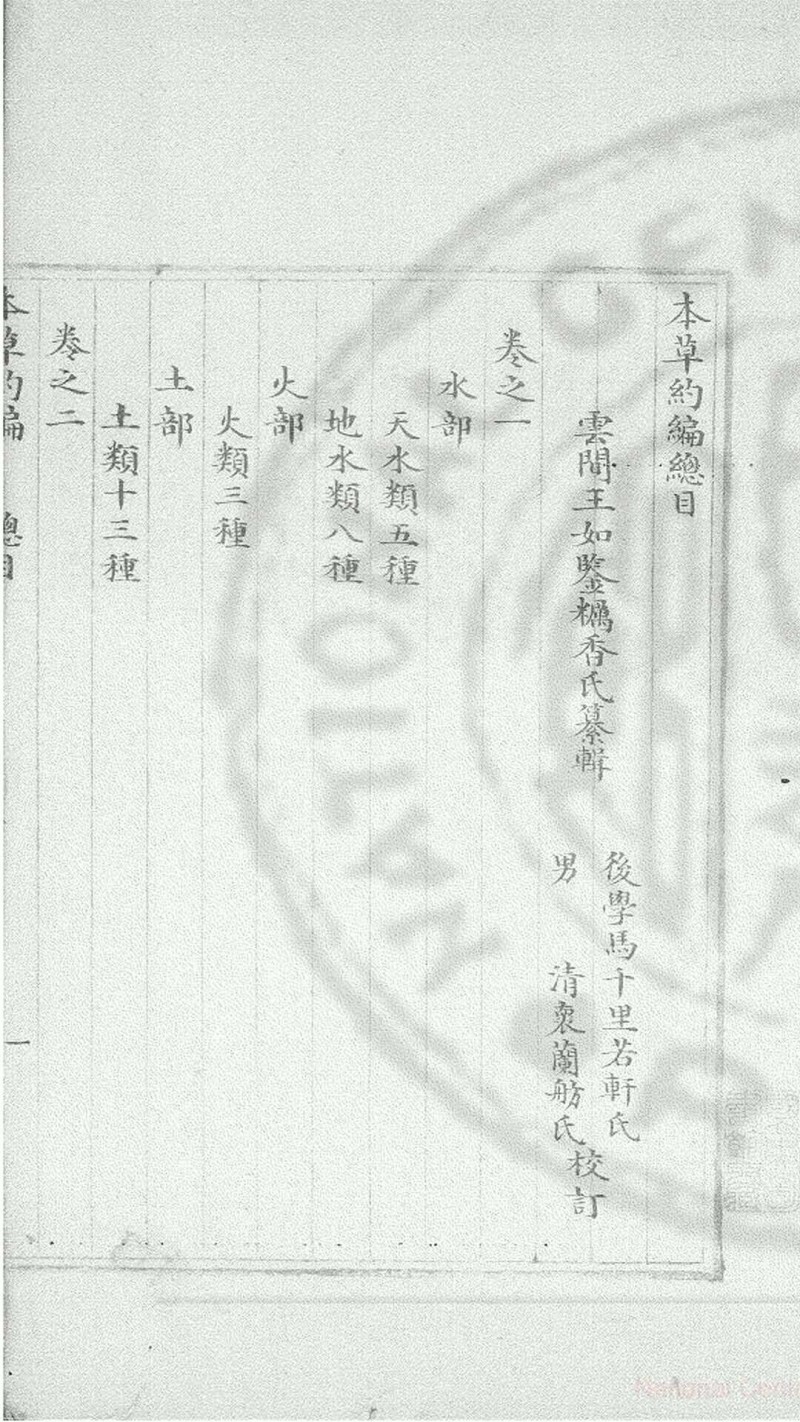 本草約編總目
雲間王如鑒糲香氏纂輯
後學馬千里若軒氏
男 清裒蘭舫氏
校訂
卷之一
水部
天水類五種
地水類八種
火部
火類三種
土部
土類十三種
卷之二
本草約編 總目 一
National Cent